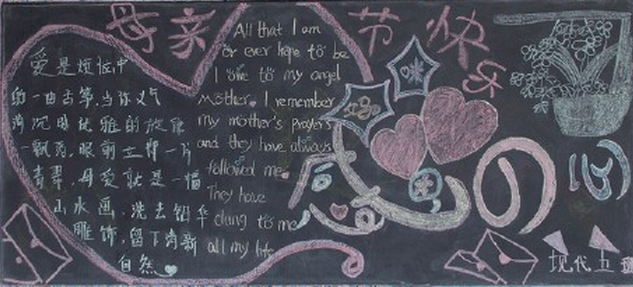 母亲节快乐
爱是烦恼中
的一曲古筝,当你义气
消沉时优雅的旋律
一飘荡,眼前立即一片
青翠,母爱就是一幅
山水画,洗去铅华
雕饰,留下清新
自然
All that I am
or ever hope to be
I owe to my angel
Mother. I remember
my mother's prayers
and they have always
followed me.
They have
clung to me
all my life
感恩的心
现代五